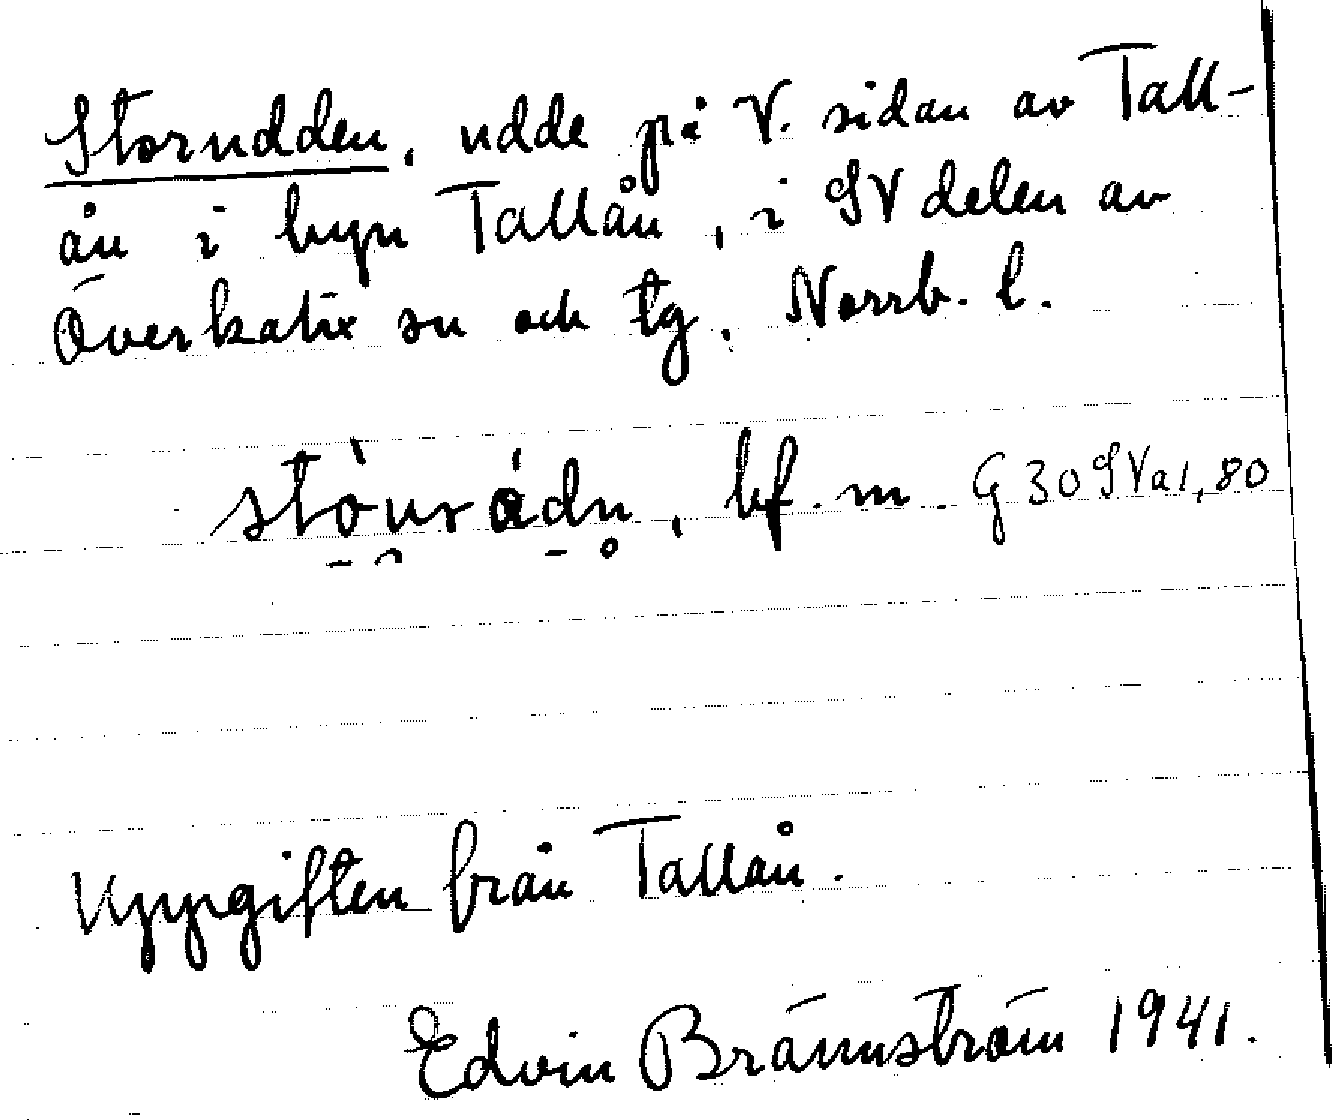 Storudden, udde på V. sidan av Tall-
ån i byn Tallån, i SV delen av
Överkalix sn och tg. Norrb. l.
bf. m G 30 SVa1,80
Uppgiften från Tallån.
Edvin Brännström 1941.